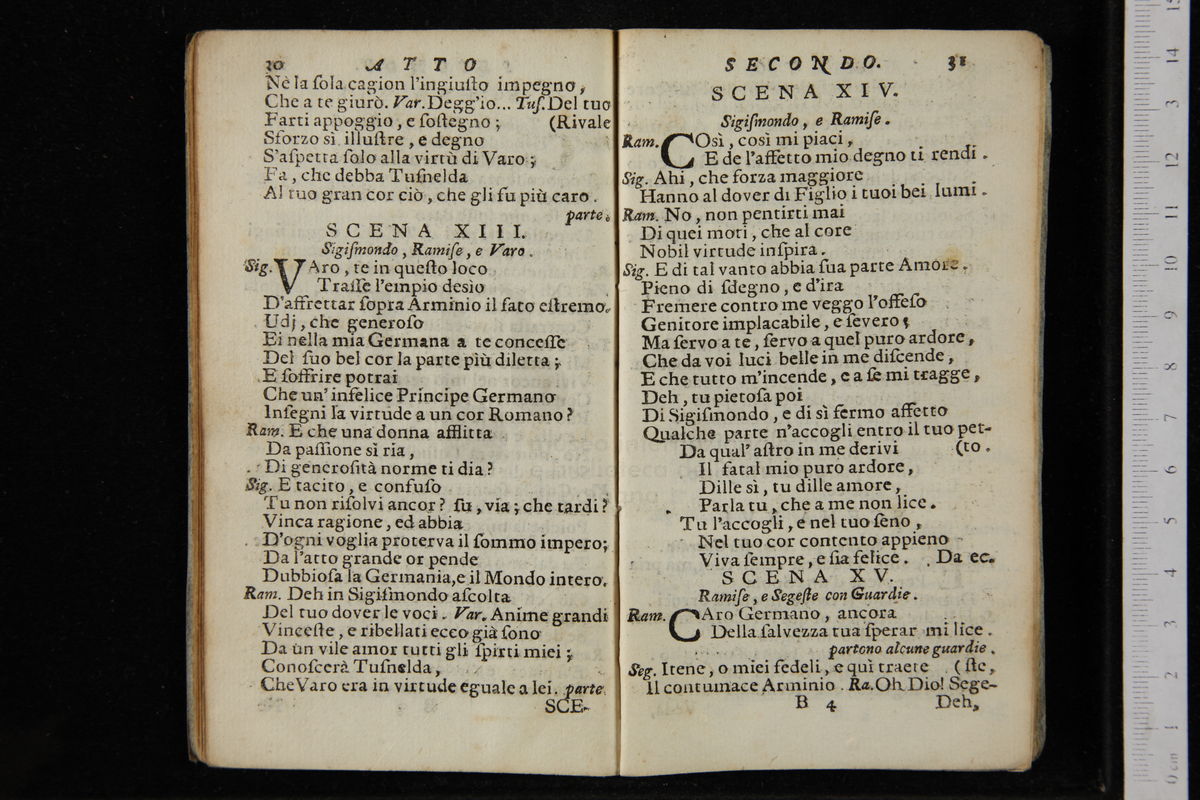 30 ATTO
Nè la ſola cagion l'ingiuſto impegno,
Che a te giurò. Var. Degg'io... Tuſ. Del tuo
Farti appoggio, e ſoſtegno; (Rivale
Sforzo sì illuſtre, e degno
S'aſpetta ſolo alla virtù di Varo;
Fa, che debba Tuſnelda
Al tuo gran cor ciò, che gli fu più caro.
parte.
SCENA XIII.
Sigiſmondo, Ramiſe, e Varo.
Sig. VAro, te in queſto loco
Traſſe l'empio desìo
D'affrettar ſopra Arminio il fato eſtremo.
Udj, che generoſo
Ei nella mia Germana a te conceſſe
Del ſuo bel cor la parte più diletta;
E ſoffrire potrai
Che un' infelice Principe Germano
Inſegni la virtude a un cor Romano?
Ram. E che una donna afflitta
Da paſſione sì ria,
Di generoſità norme ti dia?
Sig. E tacito, e confuſo
Tu non riſolvi ancor? ſu, via; che tardi?
Vinca ragione, ed abbia
D'ogni voglia proterva il ſommo impero;
Da l'atto grande or pende
Dubbioſa la Germania, e il Mondo intero.
Ram. Deh in Sigiſmondo aſcolta
Del tuo dover le voci. Var. Anime grandi
Vinceſte, e ribellati ecco già ſono
Da un vile amor tutti gli ſpirti miei;
Conoſcerà Tuſnelda,
Che Varo era in virtude eguale a lei. parte
SCE-
SECONDO. 31
SCENA XIV.
Sigiſmondo, e Ramiſe.
Ram. COsì, così mi piaci,
E de l'affetto mio degno ti rendi.
Sig. Ahi, che forza maggiore
Hanno al dover di Figlio i tuoi bei lumi.
Ram. No, non pentirti mai
Di quei moti, che al core
Nobil virtude inſpira.
Sig. E di tal vanto abbia ſua parte Amore.
Pieno di ſdegno, e d'ira
Fremere contro me veggo l'offeſo
Genitore implacabile, e ſevero;
Ma ſervo a te, ſervo a quel puro ardore,
Che da voi luci belle in me diſcende,
E che tutto m'incende, e a ſe mi tragge,
Deh, tu pietoſa poi
Di Sigiſmondo, e di sì fermo affetto
Qualche parte n'accogli entro il tuo pet-
Da qual' aſtro in me derivi (to.
Il fatal mio puro ardore,
Dille sì, tu dille amore,
Parla tu, che a me non lice.
Tu l'accogli, e nel tuo ſeno,
Nel tuo cor contento appieno
Viva ſempre, e ſia felice. Da ec.
SCENA XV.
Ramiſe, e Segeſte con Guardie.
Ram. CAro Germano, ancora
Della ſalvezza tua ſperar mi lice.
partono alcune guardie.
Seg. Itene, o miei fedeli, e quì traete (ſte,
Il contumace Arminio. Ra. Oh Dio! Sege-
B 4 Deh,